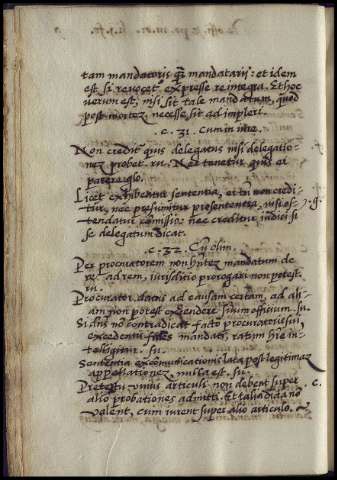 tam mandatoris qr mandatarij: et idem
est si revocet expresse re integra. Et hoc
verum est, nisi sit tale mandatum, quod
post mortez necesse sit adimpleri.
c. 31. Cum in iure.
Non creditr quis delegatus nisi delegatio-
nez probet. su. Nec tenetur quis ei
parere
Licet exhibentur sententia, et tu non credi-
tur, nec presumitur pro sententia, nisi os-
tendatur comissio: nec creditur iudici si
se delegatum dicat.
c. 32. Cu olim.
Per procuratorem non hntez mandatum de
re ad rem, iurisditio prorogari non potest.
su.
Procurator datus ad causam certam, ad ali-
am non potest extendere suum officium. su.
Si dns no contradicat facto procuratoris sui
excedentis fines mandati, ratum hre in-
telligitur. su.
Sententia excomunicationis lata post legitimaz
appellationez, nulla est. su.
Pretextu unius articuli non debent super c.
alio probationes admitti. Et
valent, cum iurent super alio articulo.